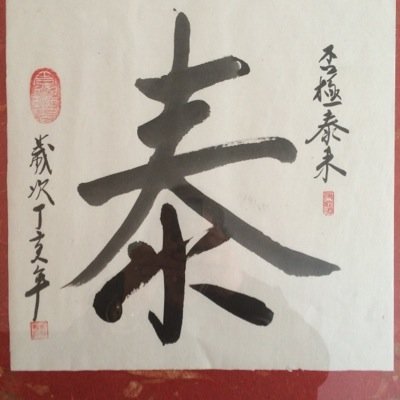 否極泰来
泰
歲次丁亥年